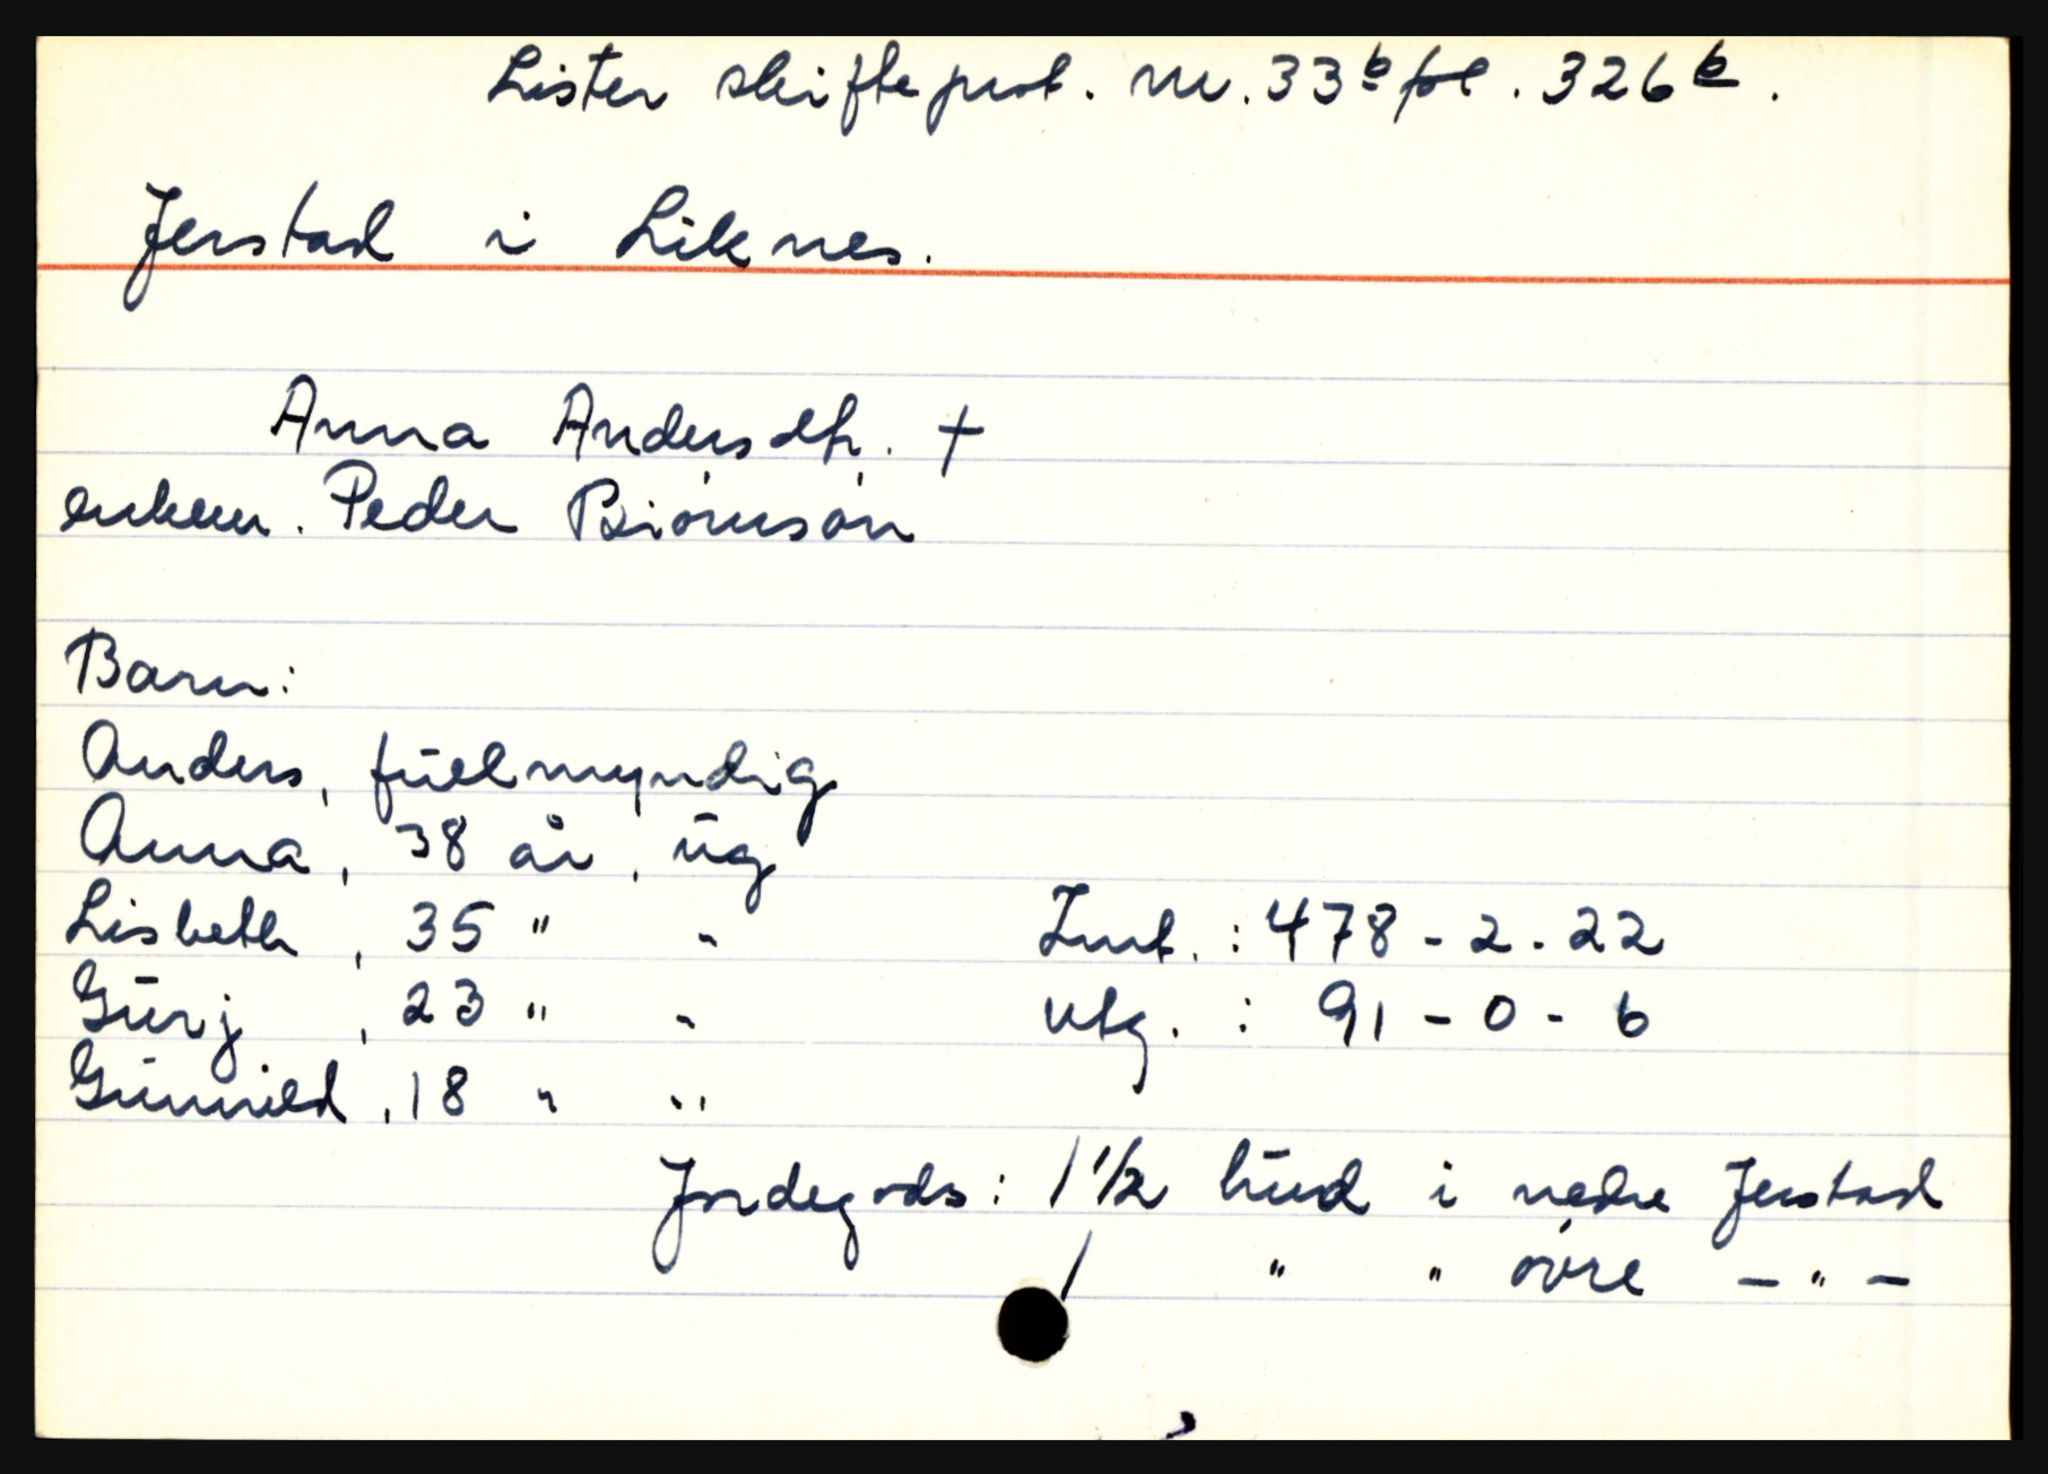 Lister skifteprot. nr. 33b fol. 326b.
Jerstad i Liknes.
Anna Andersdtr. †
enkem. Peder Biörnsön
Barn:
Anders, fuelmyndig
Anna, 38 år, ug
Lisbeth, 35 " "
Gurj, 23 " "
Gunnild, 18 " "
Innt.: 478-2-22
Utg.: 91-0-6
Jordegods: 1 1/2 hud i nedre Jerstad
1 " " övre -"-